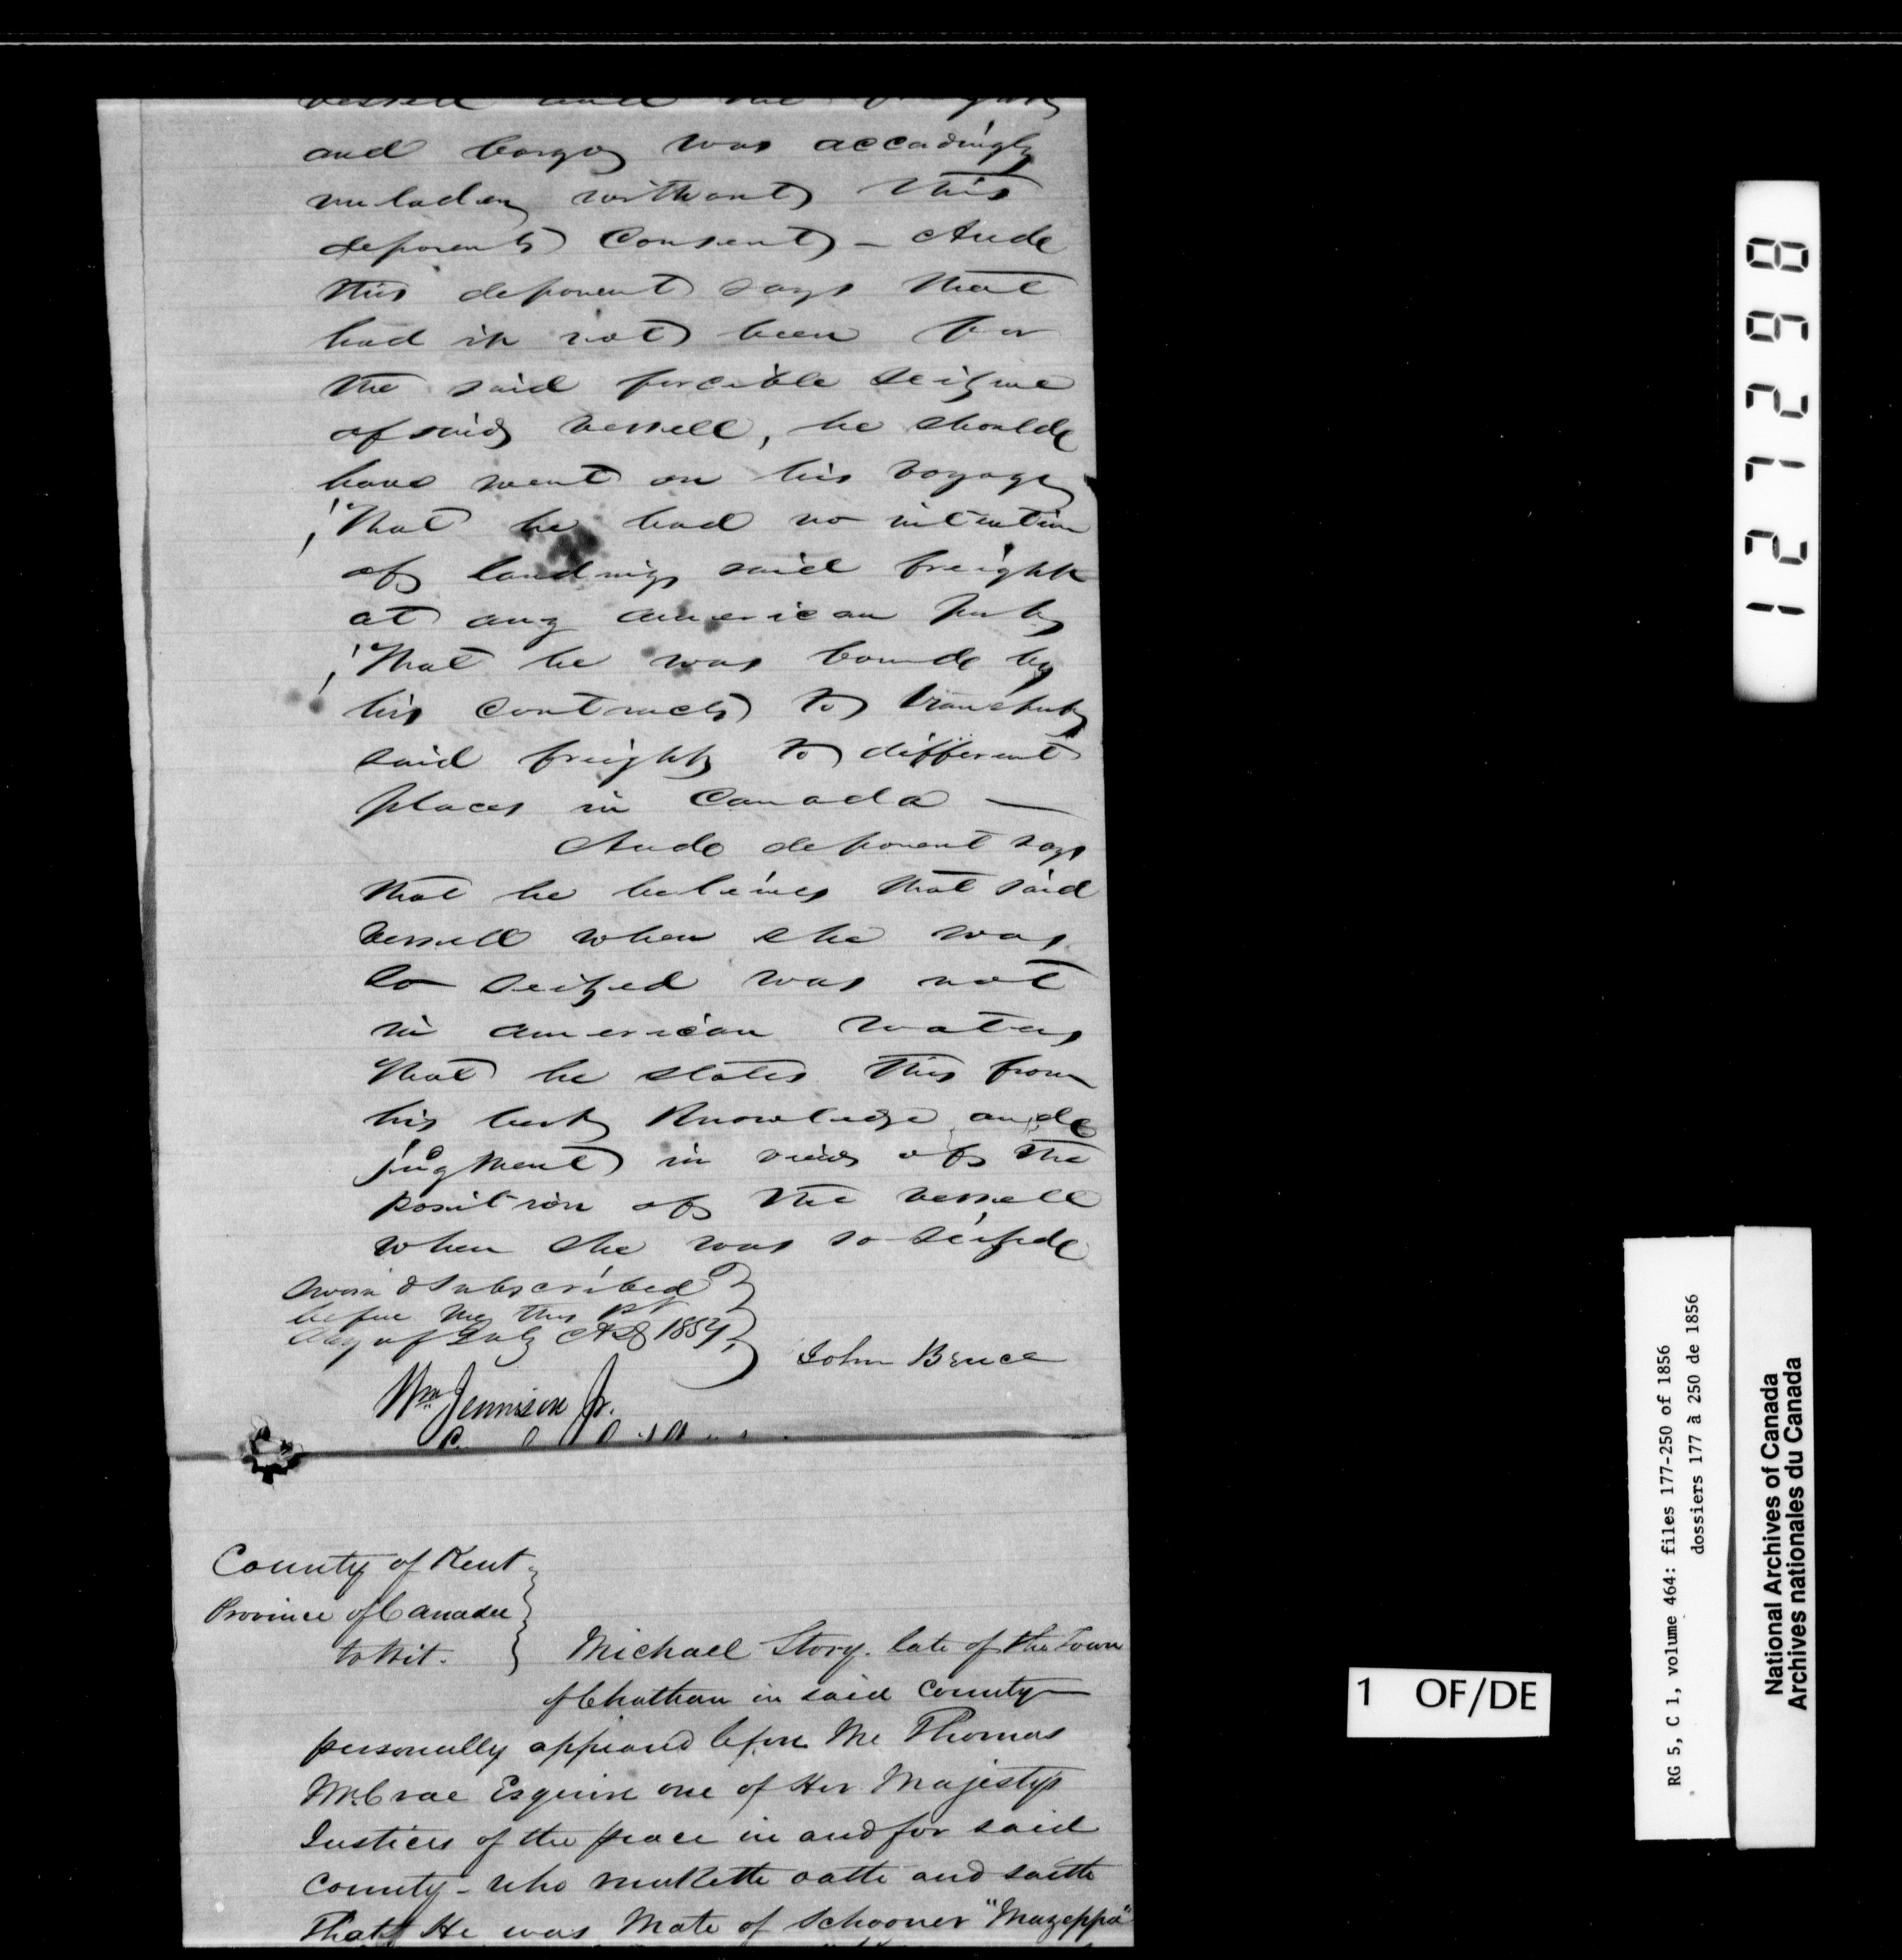 and Cargo was accadingly
unladen without this
deponents Consent - And
this deponent says that
had it not been for
the said forcible seizure
of said vessell, he should
have went on his voyage
, That he had no intention
of landing said freight
at any american port
, That he was bound by
his contracts to transport
said freight to different
places in Canada —
And deponent says
that he beleives that said
vessell when she was
so seized was not
in american waters
that he states this from
his best Knowledge and
jugment in view of the
position of the vessell
when she was so seized
Sworn & Subscribed
before me this 1st
day of July AD 1854,
John Bruce
Wm. Jennison Jr.
County of Kent
Province of Canada
to Wit.
Michael Story. late of the Town
of Chatham in said County
personally appeared before Me Thomas
McCrae Esquire one of Her Majestys
Justices of the peace in and for said
County - who maketh oath and saith
That He was Mate of Schooner "Mazeppa"
127298
1 OF/DE
RG 5, C 1, volume 464: files 177-250 of 1856
dossiers 177 à 250 de 1856
National Archives of Canada
Archives nationales du Canada